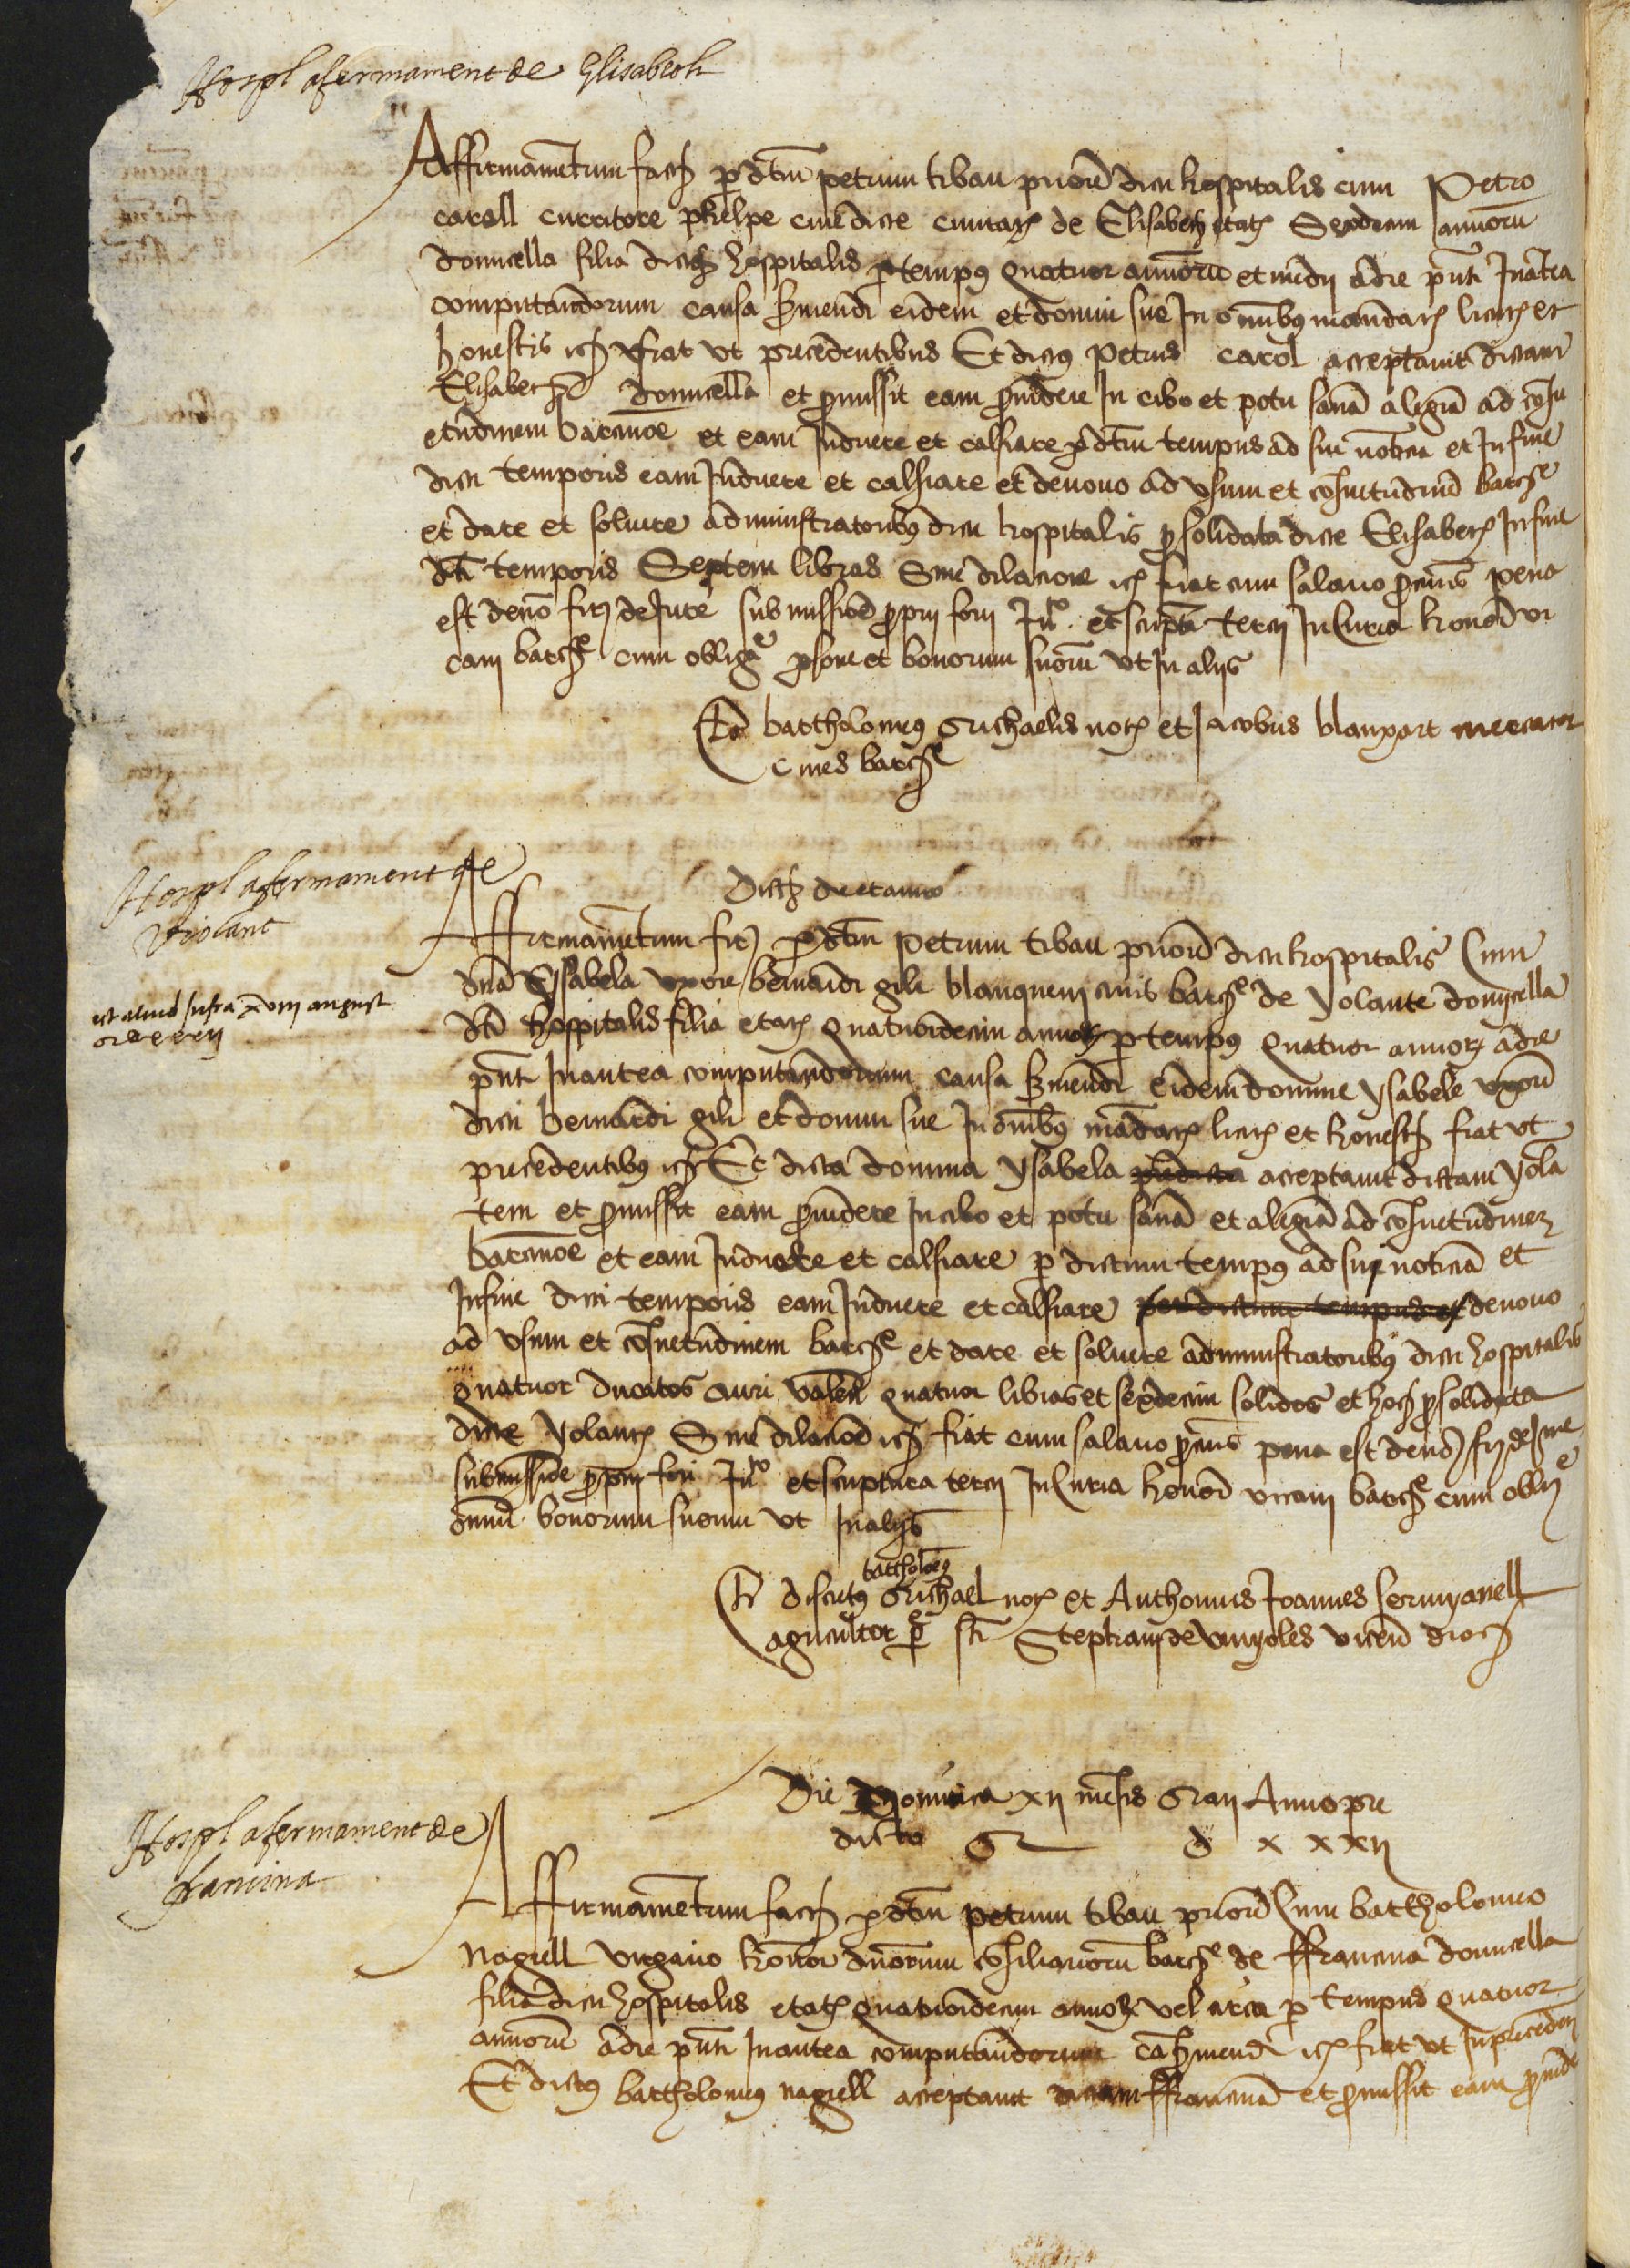 Hospl afermament de Elisabeth
Affirmamentum factz p dtm petrum tibau priore dicti hospitalis cum Petro
caroll curritore cive dicte civitatz de Elisabetz etatz Sexdecim annoru
domicella filia dictz hospitalis p tempus quatuor annoru et medij a die pnti In antea
computandorum causa sviendi eidem et domui sue In omibus mandatz licitz et
honestis etz fiat ut precedentibus Et dictus Petrus carol acceptavit dictam
Elisabetz domicella et promissit eam providere In cibo et potu sana alegra ad cosu
etudinem barcinone et eam Induere et calsiare p dtm tempus ad sui noticia et In fine
dicti temporis eam Induere et calsiare et denovo ad usum et cosuetudine barcne
et dare et solvere administratoribus dicti hospitalis p solidata dicte Elisabetz In fine
dti temporis Septem libras Sine dilacione etz fiat cum salario procuris pena
est de non firz de Jure submissioe proprij fori Juo et scriptura tercij In Curia honor vi
carij barcne cum obligae psone et bonorum suoru ut In alijs
Ts bartholomeus Michaelis notz et Jacobus blanxart mercator
cives barcne
Hospl afermament de
Violant
est aliud Infra xviij august
Dictz die et anno
Affirmamentum firz p dtm petrum tibau priore dicti hospitalis Cum
dna Ysabela uxore bernardi gili blanquerij civis barcne de Yolante domicella
dti hospitalis filia etatz quatuordecim annorz p tempus quatuor annorz a die
pnti In antea computandorum causa sviendi Eidem domine Ysabele uxori
dicti bernardi gili et domui sue In omibus madatz licitz et honestz fiat ut
precedentibus etz Et dicta domina Ysabela predicta acceptavit dictam Yola
tem et promissit eam providere In cibo et potu sana et alegra ad cosuetudinez
barcinone et eam Induere et calsiare p dictum tempus ad sui noticia et
In fine dicti temporis eam Induere et calsiare per dictum tempus et denovo
ad usum et cosuetudinem barcne et dare et solvere administratoribus dicti hospitalis
quatuor ducatos auri valen quatuor libras et sexdecim solidos et hoc p solidata
dicte Yolantz Sine dilacioe etz fiat cum salario procuris pena est de no firz de Jure
submissioe proprij fori Juo et scriptura tercij In Curia honor vicarij barcne cum oblige
omniu bonorum suorum ut In alijs
Ts discretus bartholoeus Michael notz et Anthonius Joannes sermyanell
agricultor pe sti Stephani de vinyoles vicen diocz
Die Dominica xij mensis Maij Anno pre
dicto M D x x xij
Hospl afermament de
francina
Affirmamentum factz p dtm petrum tibau priore Cum bartholomeo
nagrell virgario honor dnorum cosiliarioru barcne de ffrancina domicella
filia dicti hospitalis etatz quatuordecim annorz vel circa p tempus quatuor
annoru a die pnti In antea computandorum ca sviendi etz fiat ut In preceden
Et dictus bartholomeus nagrell acceptavit dictam ffrancina et promissit eam provide